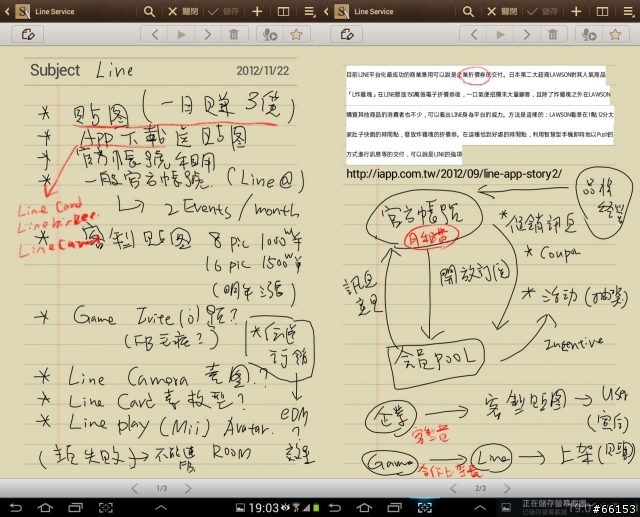 Line Service
關閉
儲存
Line Service
關閉
儲存
Subject Line
2012/11/22
* 貼圖 (一日賺3億)
* App下載送貼圖
* 官方帳號租用
* 一般官方帳號. (Line@)
↳ 2 Events/month
Line Card
Line Camera
* 客製貼圖 8 pic 1000W
16 pic 1500W
(明年漲)
* Game Invite(i) 碩?
(FB 毛病?)
* Line Camera 賣圖?
* Line Card 賣款型?
* Line play (Mii) Avatar.
eDM
?
(訊失敗) → 不能 ROOM
1/3
19:03
目前LINE平台化最成功的商業應用可以說是企業折價券的交付。日本第二大超商LAWSON對其人氣商品
「L炸雞塊」在LINE發放150萬張電子折價券後,一口氣便招攬來大量顧客,且除了炸雞塊之外在LAWSON
購買其他商品的消費者也不少,可以看出LINE身為平台的威力。方法是這樣的:LAWSON看準在1點12分大
家肚子快餓的時間點,發放炸雞塊的折價券。在這種恰到好處的時間點,利用智慧型手機即時地以Push的
方式進行訊息等的交付,可以說是LINE的強項
http://iapp.com.tw/2012/09/line-app-story2/
品牌
經營
官方帳號
月租費
* 促銷訊息
* Coupon
* 活動 (抽獎)
Incentive
訊息
開放訂閱
會員 POOL
企業 → 客製貼圖 → User
客製費
Game → Line → 上架
合作上架費
2/3
正在儲存螢幕擷圖
已儲存螢幕擷圖
#66153